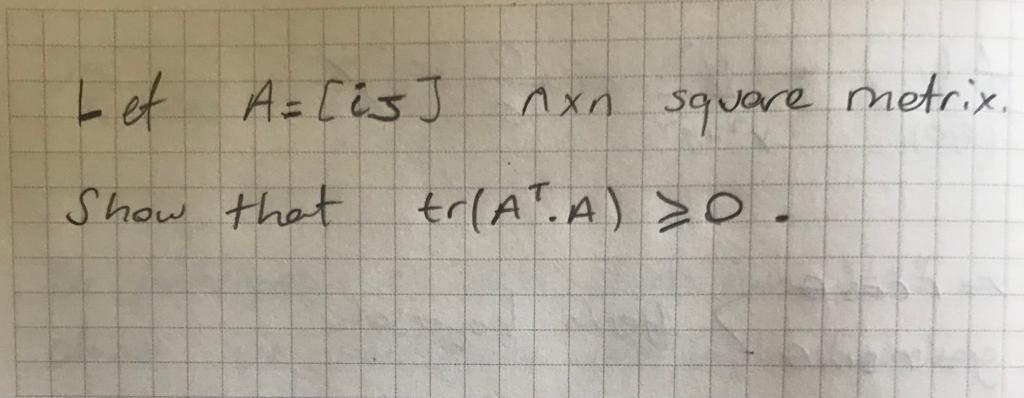 Let A = [ij] n×n square metrix.
Show that tr(Aᵀ.A) ≥ 0.